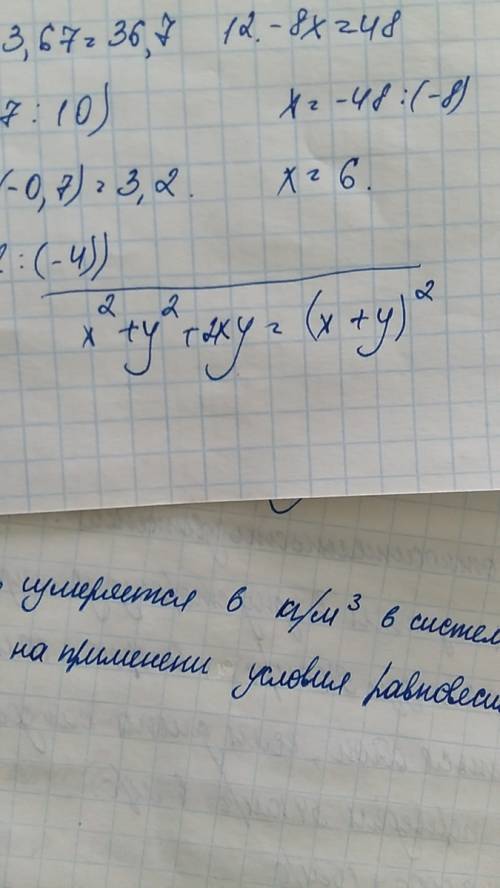 3,67=36,7
12. -8x=48
7 : 10)
x= -48 :(-8)
(-0,7) = 3,2.
x= 6.
: (-4))
x²+y²+2xy= (x+y)²
измеряется в кг/м³ в систем
на применени условия равновесия